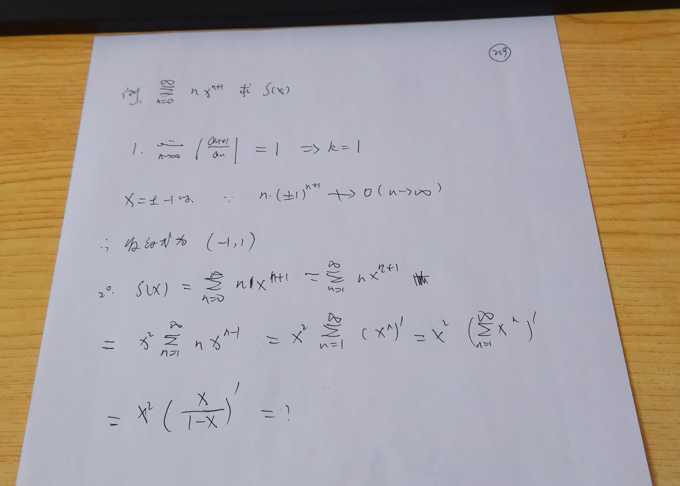 209
例. ∑_{n=0}^{∞} n x^{n+1} 求 S(x)
1. lim_{n→∞} |a_{n+1}/a_n| = 1 ⇒ R=1
x=±1时, ∵ n·(±1)^{n+1} ↛ 0 (n→∞)
∴ 收敛域为 (-1,1)
2°. S(x) = ∑_{n=0}^{∞} n x^{n+1} = ∑_{n=1}^{∞} n x^{n+1}
= x² ∑_{n=1}^{∞} n x^{n-1} = x² ∑_{n=1}^{∞} (xⁿ)' = x² (∑_{n=1}^{∞} xⁿ)'
= x² (x/(1-x))' = ?